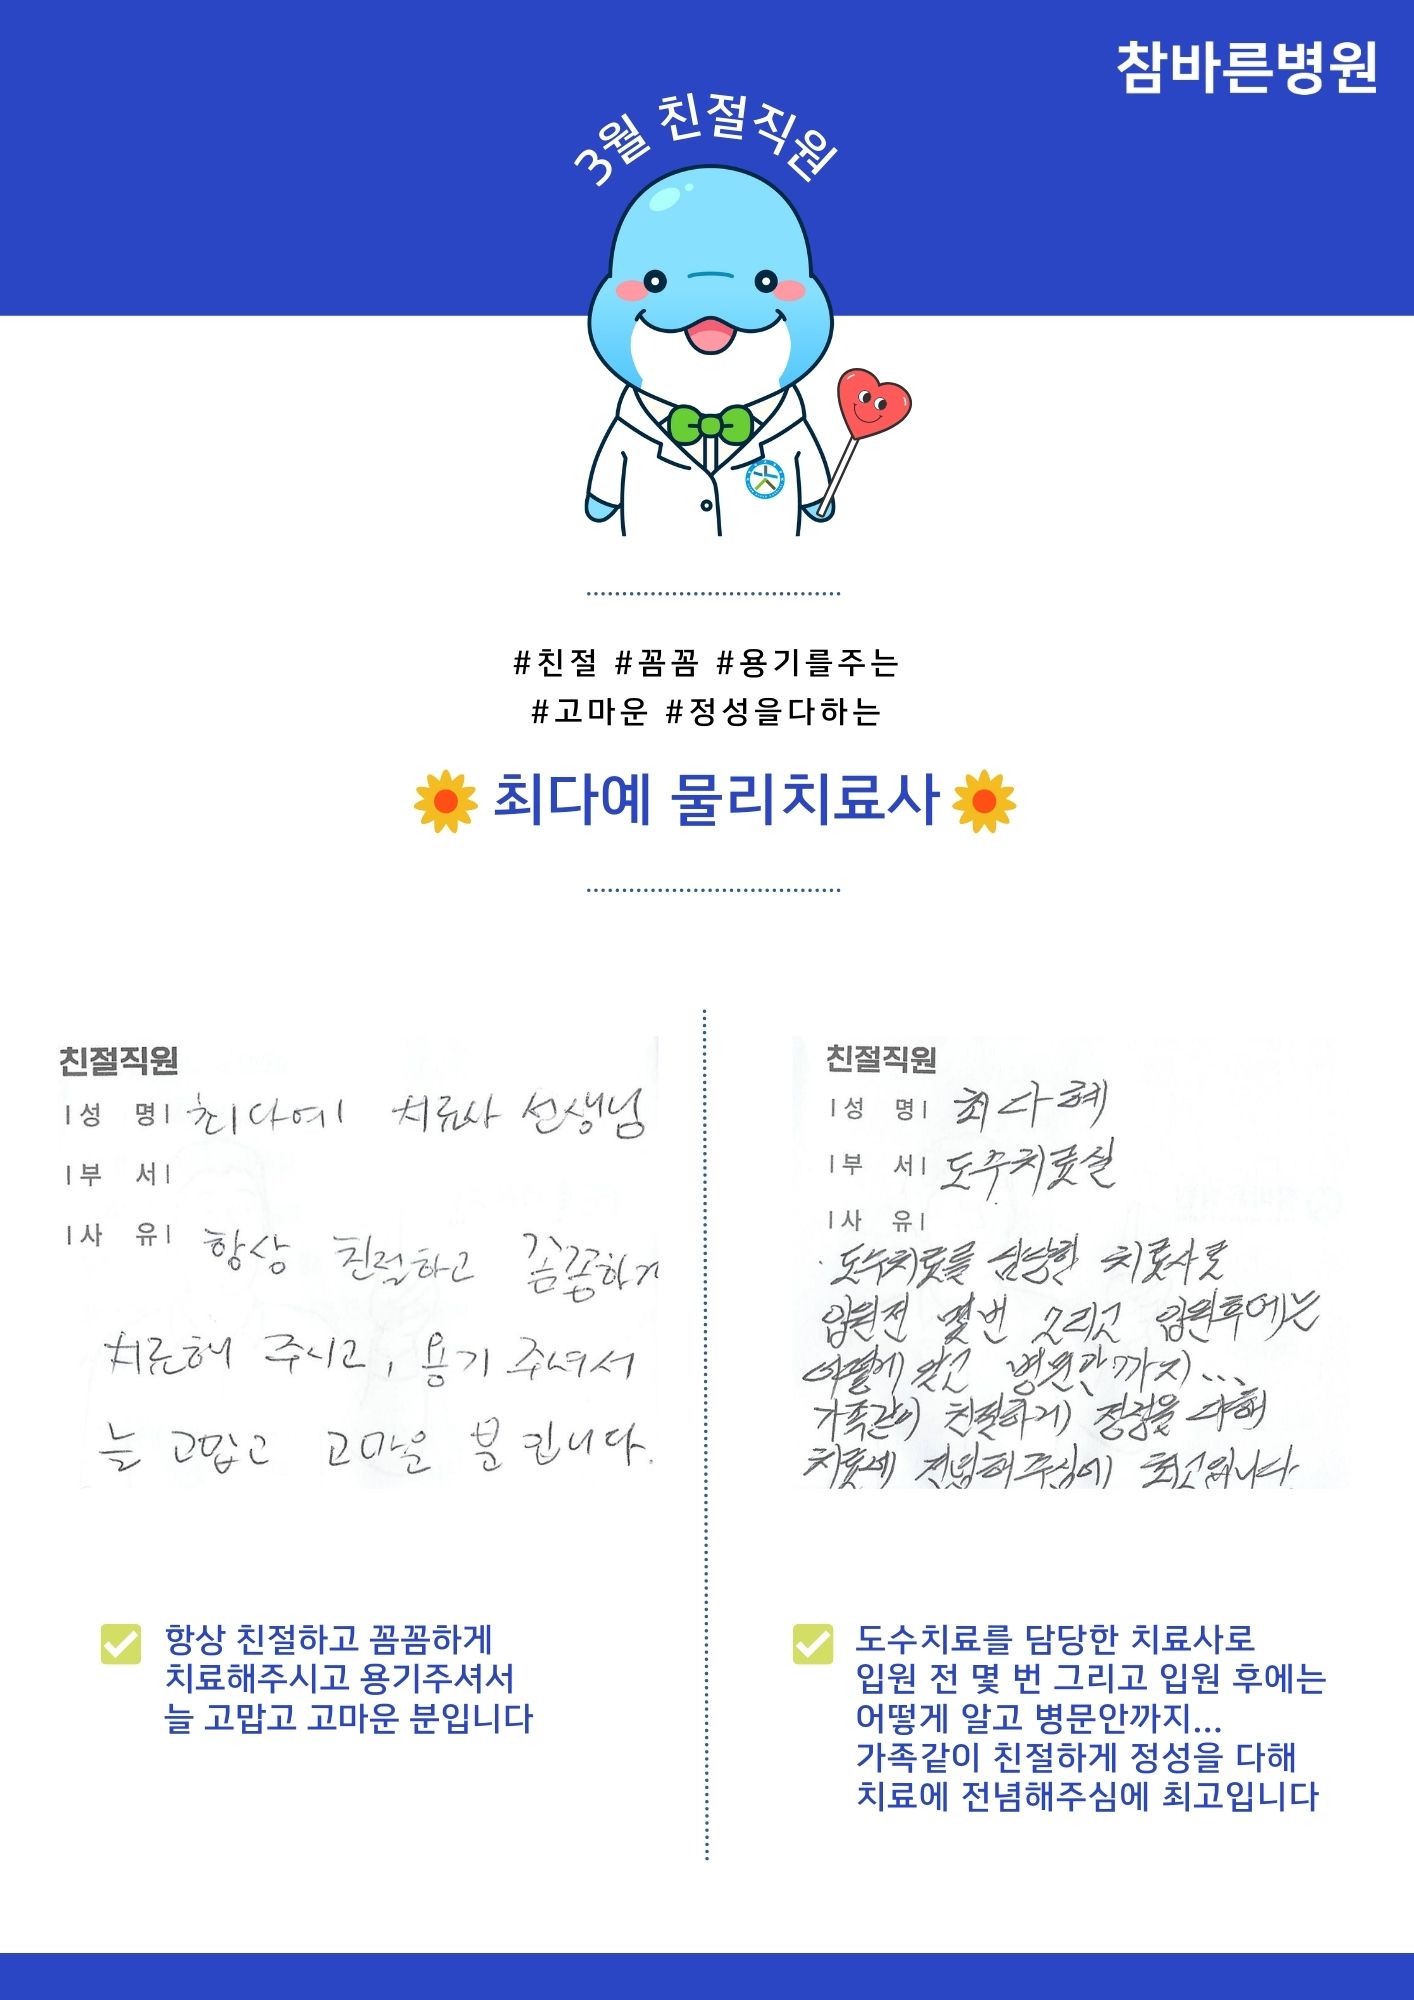 참바른병원
3월 친절직원
#친절 #꼼꼼 #용기를주는
#고마운 #정성을다하는
최다예 물리치료사
친절직원
|성 명| 최다예 치료사 선생님
|부 서|
|사 유| 항상 친절하고 꼼꼼하게
치료해 주시고, 용기 주셔서
늘 고맙고 고마운 분 입니다.
친절직원
|성 명| 최다혜
|부 서| 도수치료실
|사 유|
· 도수치료를 담당한 치료사로
입원전 몇번 그리고 입원후에는
어떻게 알고 병문안까지...
가족같이 친절하게 정성을 다해
치료에 전념해주심에 최고입니다.
항상 친절하고 꼼꼼하게
치료해주시고 용기주셔서
늘 고맙고 고마운 분입니다
도수치료를 담당한 치료사로
입원 전 몇 번 그리고 입원 후에는
어떻게 알고 병문안까지...
가족같이 친절하게 정성을 다해
치료에 전념해주심에 최고입니다